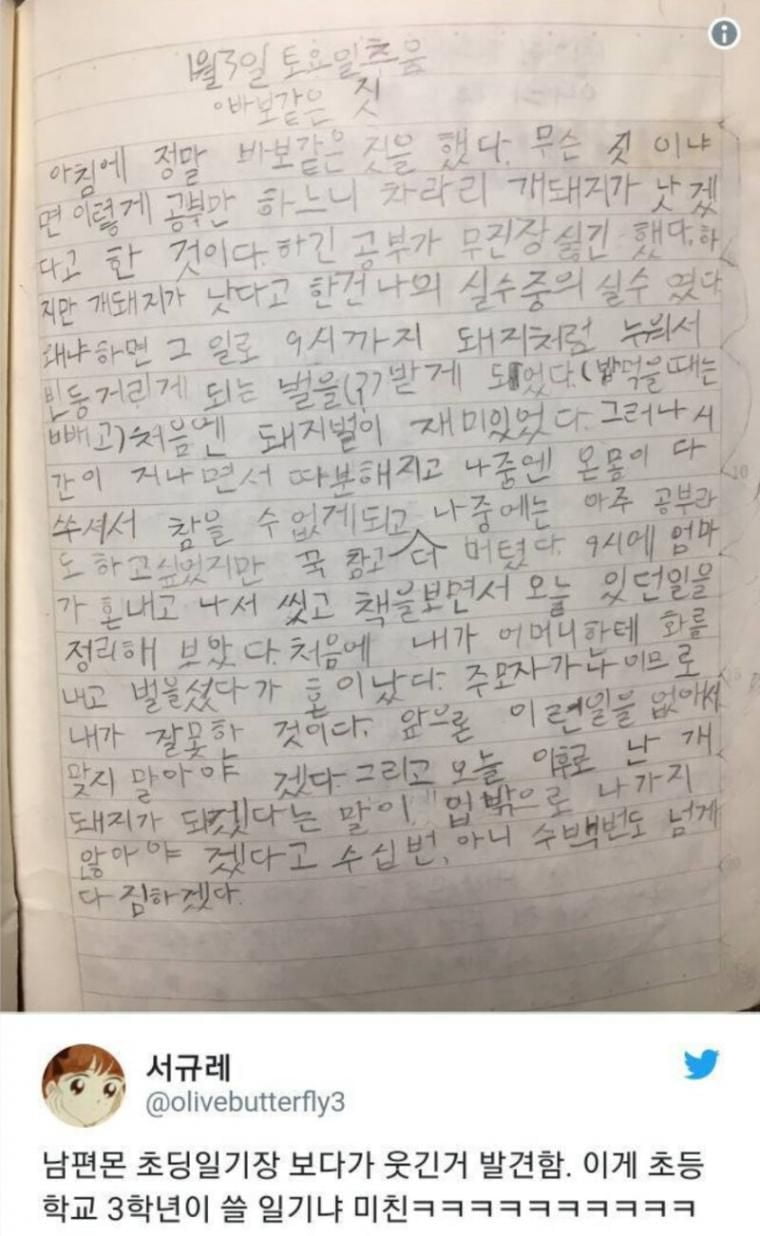 1월3일 토요일 추움
바보같은 짓
아침에 정말 바보같은 짓을 했다. 무슨 짓 이냐
면 이렇게 공부만 하느니 차라리 개돼지가 낫겠
다고 한 것이다. 하긴 공부가 무진장 싫긴 했다. 하
지만 개돼지가 낫다고 한건 나의 실수중의 실수 였다
왜냐하면 그 일로 9시까지 돼지처럼 누워서
빈둥거리게 되는 벌을(?) 받게 되었다. (밥먹을때는
빼고) 처음엔 돼지벌이 재미있었다. 그러나 시
간이 지나면서 따분해지고 나중엔 온몸이 다
쑤셔서 참을 수 없게되고 나중에는 아주 공부라
도 하고싶었지만 꾹 참고 더 버텼다. 9시에 엄마
가 혼내고 나서 씻고 책을보면서 오늘 있던일을
정리해 보았다. 처음에 내가 어머니한테 화를
내고 벌을섰다가 혼이났다. 주모자가 나 이므로
내가 잘못한 것이다. 앞으론 이런일을 없애서
맞지 말아야 겠다. 그리고 오늘 이후로 난 개
돼지가 되겠다는 말이 입밖으로 나가지
않아야 겠다고 수십번, 아니 수백번도 넘게
다짐하겠다.
서규레
@olivebutterfly3
남편몬 초딩일기장 보다가 웃긴거 발견함. 이게 초등
학교 3학년이 쓸 일기냐 미친ㅋㅋㅋㅋㅋㅋㅋㅋㅋㅋㅋ